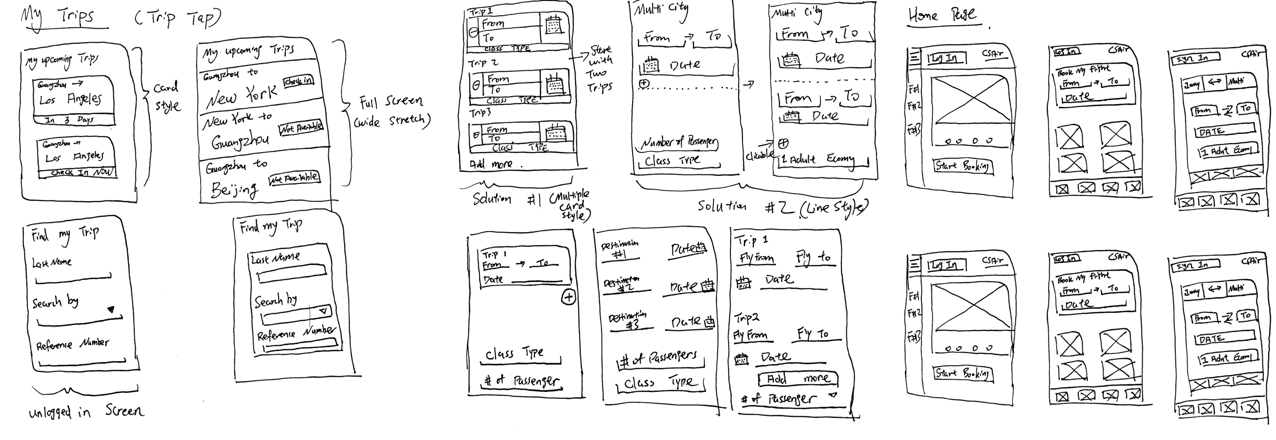 My Trips (Trip Tap)
My upcoming Trips
Guangzhou →
Los Angeles
In 3 Days
Guangzhou →
Los Angeles
Check In Now
Card
style
My upcoming Trips
Guangzhou to
New York
Check in
New York to
Guangzhou
Not Available
Guangzhou to
Beijing
Not Available
Full Screen
(wide stretch)
Find my Trip
Last Name
Search by
Reference Number
unlogged in Screen
Find my Trip
Last Name
Search by
Reference Number
Trip 1
From
To
Class TYPE
Trip 2
From
To
Class TYPE
Trip 3
From
To
Class TYPE
Add more.
Start
with
Two
Trips
Solution #1 (Multiple
card
style)
Multi City
From → To
Date
Number of Passenger
Class Type
Multi City
From → To
Date
From → To
Date
Clickable
1 Adult Econmy
Solution #2 (Line Style)
Trip 1
From → To
Date
Class Type
# of Passenger
Destination
#1
Date
Destination
#2
Date
Destination
#3
Date
# of Passengers
Class Type
Trip 1
Fly From Fly to
Date
Trip 2
Fly From Fly To
Date
Add more
# of Passenger
Home Page
Log In CSAir
Start Booking
Log In CSAir
Book My Flight
From → To
Date
Sign In CSAir
Multi
From To
DATE
1 Adult Econmy
Log In CSAir
Start Booking
Log In CSAir
Book My Flight
From → To
Date
Sign In CSAir
Multi
From To
DATE
1 Adult Econmy